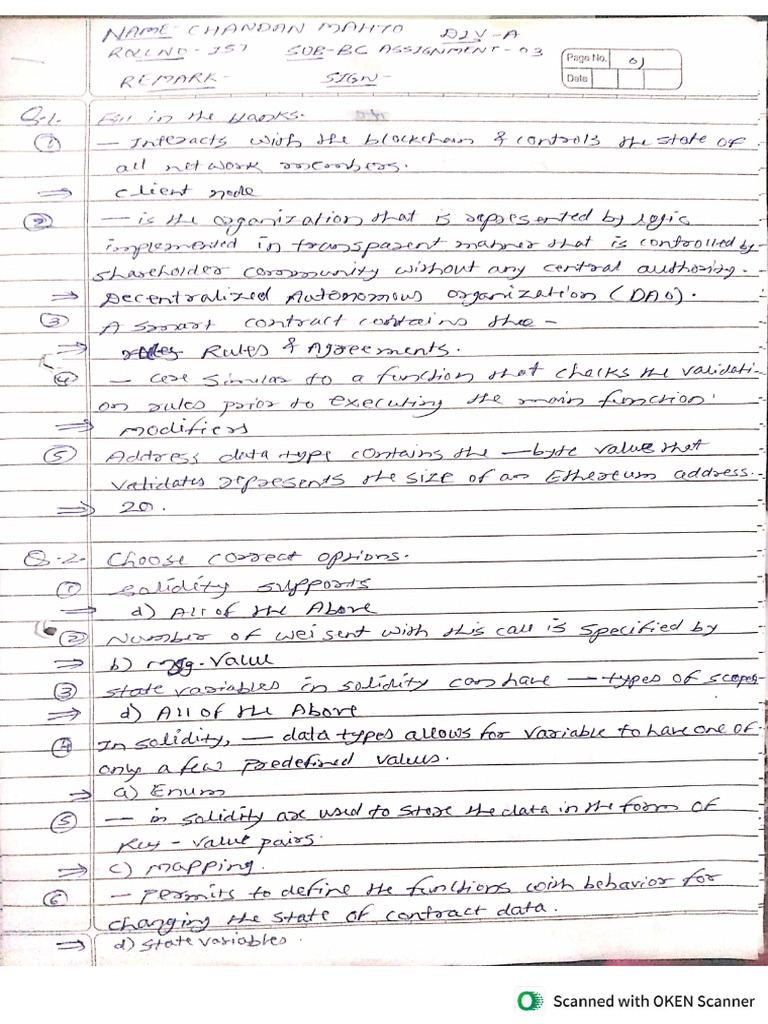 NAME - CHANDAN MAHTO DIV-A
ROLLNO - 157 SUB-BC ASSIGNMENT-03
Page No. 01
REMARK - SIGN-
Date
Q.1. Fill in the blanks.
① — Interacts with the blockchain & controls the state of
all network members.
⇒ client node
② — is the organization that is represented by logic
implemented in transparent manner that is controlled by
shareholder community without any central authority.
⇒ Decentralized Autonomous organization (DAO).
③ A smart contract contains the —
⇒ Rules & Agreements.
④ — are similar to a function that checks the validati-
on rules prior to executing the main function.
⇒ modifiers
⑤ Address data type contains the — byte value that
validates represents the size of an Ethereum address.
⇒ 20.
Q.2. Choose correct options.
① solidity supports
⇒ d) All of the Above
② Number of wei sent with this call is specified by
⇒ b) msg.value
③ state variables in solidity can have — types of scopes
⇒ d) All of the Above
④ In solidity, — data types allows for variable to have one of
only a few predefined values.
⇒ a) Enum
⑤ — in solidity are used to store the data in the form of
key - value pairs.
⇒ c) mapping.
⑥ — permits to define the functions with behavior for
changing the state of contract data.
⇒ d) state variables.
Scanned with OKEN Scanner